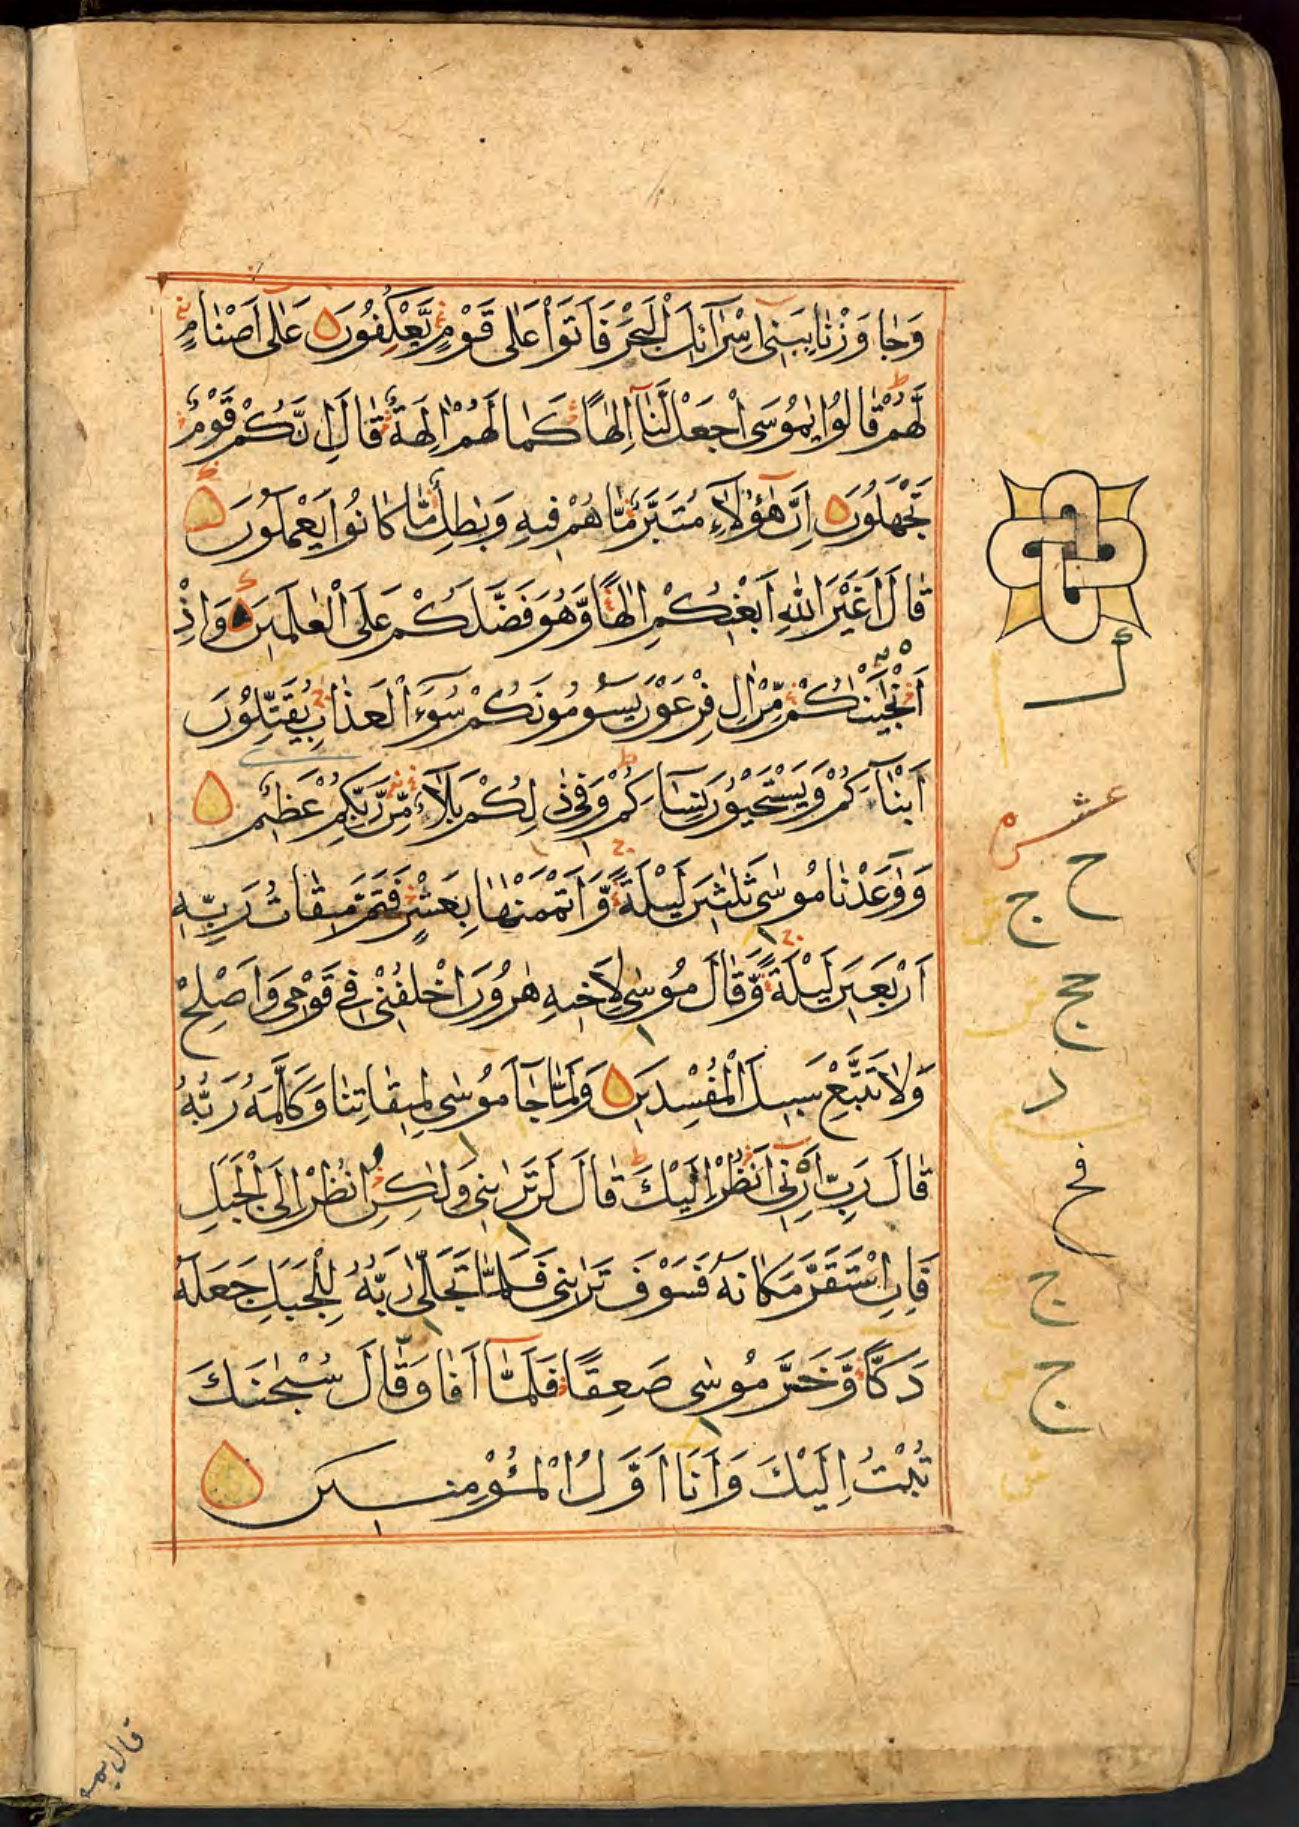 وَجَاوَزْنَا بِبَنِي اِسْرَآئِلَ الْبَحْرَ فَاَتَوْا عَلٰى قَوْمٍ يَّعْكِفُوْنَ عَلٰى اَصْنَامٍ
لَّهُمْ قَالُوْا يٰمُوْسَى اجْعَلْ لَّنَآ اِلٰهًا كَمَا لَهُمْ اٰلِهَةٌ قَالَ اِنَّكُمْ قَوْمٌ
تَجْهَلُوْنَ اِنَّ هٰٓؤُلَآءِ مُتَبَّرٌ مَّا هُمْ فِيهِ وَبٰطِلٌ مَّا كَانُوْا يَعْمَلُوْنَ
قَالَ اَغَيْرَ اللّٰهِ اَبْغِيْكُمْ اِلٰهًا وَّهُوَ فَضَّلَكُمْ عَلَى الْعٰلَمِيْنَ وَاِذْ
اَنْجَيْنٰكُمْ مِّنْ اٰلِ فِرْعَوْنَ يَسُوْمُوْنَكُمْ سُوْٓءَ الْعَذَابِ يُقَتِّلُوْنَ
اَبْنَآءَكُمْ وَيَسْتَحْيُوْنَ نِسَآءَكُمْ وَفِيْ ذٰلِكُمْ بَلَآءٌ مِّنْ رَّبِّكُمْ عَظِيْمٌ
وَوٰعَدْنَا مُوسٰى ثَلٰثِيْنَ لَيْلَةً وَّاَتْمَمْنٰهَا بِعَشْرٍ فَتَمَّ مِيْقَاتُ رَبِّهٖ
اَرْبَعِيْنَ لَيْلَةً وَّقَالَ مُوْسٰى لِاَخِيهِ هٰرُوْنَ اخْلُفْنِيْ فِيْ قَوْمِيْ وَاَصْلِحْ
وَلَا تَتَّبِعْ سَبِيلَ الْمُفْسِدِيْنَ وَلَمَّا جَآءَ مُوْسٰى لِمِيقَاتِنَا وَكَلَّمَهٗ رَبُّهٗ
قَالَ رَبِّ اَرِنِيْٓ اَنْظُرْ اِلَيْكَ قَالَ لَنْ تَرٰىنِيْ وَلٰكِنِ انْظُرْ اِلَى الْجَبَلِ
فَاِنِ اسْتَقَرَّ مَكَانَهٗ فَسَوْفَ تَرٰىنِيْ فَلَمَّا تَجَلّٰى رَبُّهٗ لِلْجَبَلِ جَعَلَهٗ
دَكًّا وَّخَرَّ مُوْسٰى صَعِقًا فَلَمَّآ اَفَاقَ قَالَ سُبْحٰنَكَ
تُبْتُ اِلَيْكَ وَاَنَا اَوَّلُ الْمُؤْمِنِيْنَ
عشر
ح
ج
حج
د
ج
ج
قال يمو